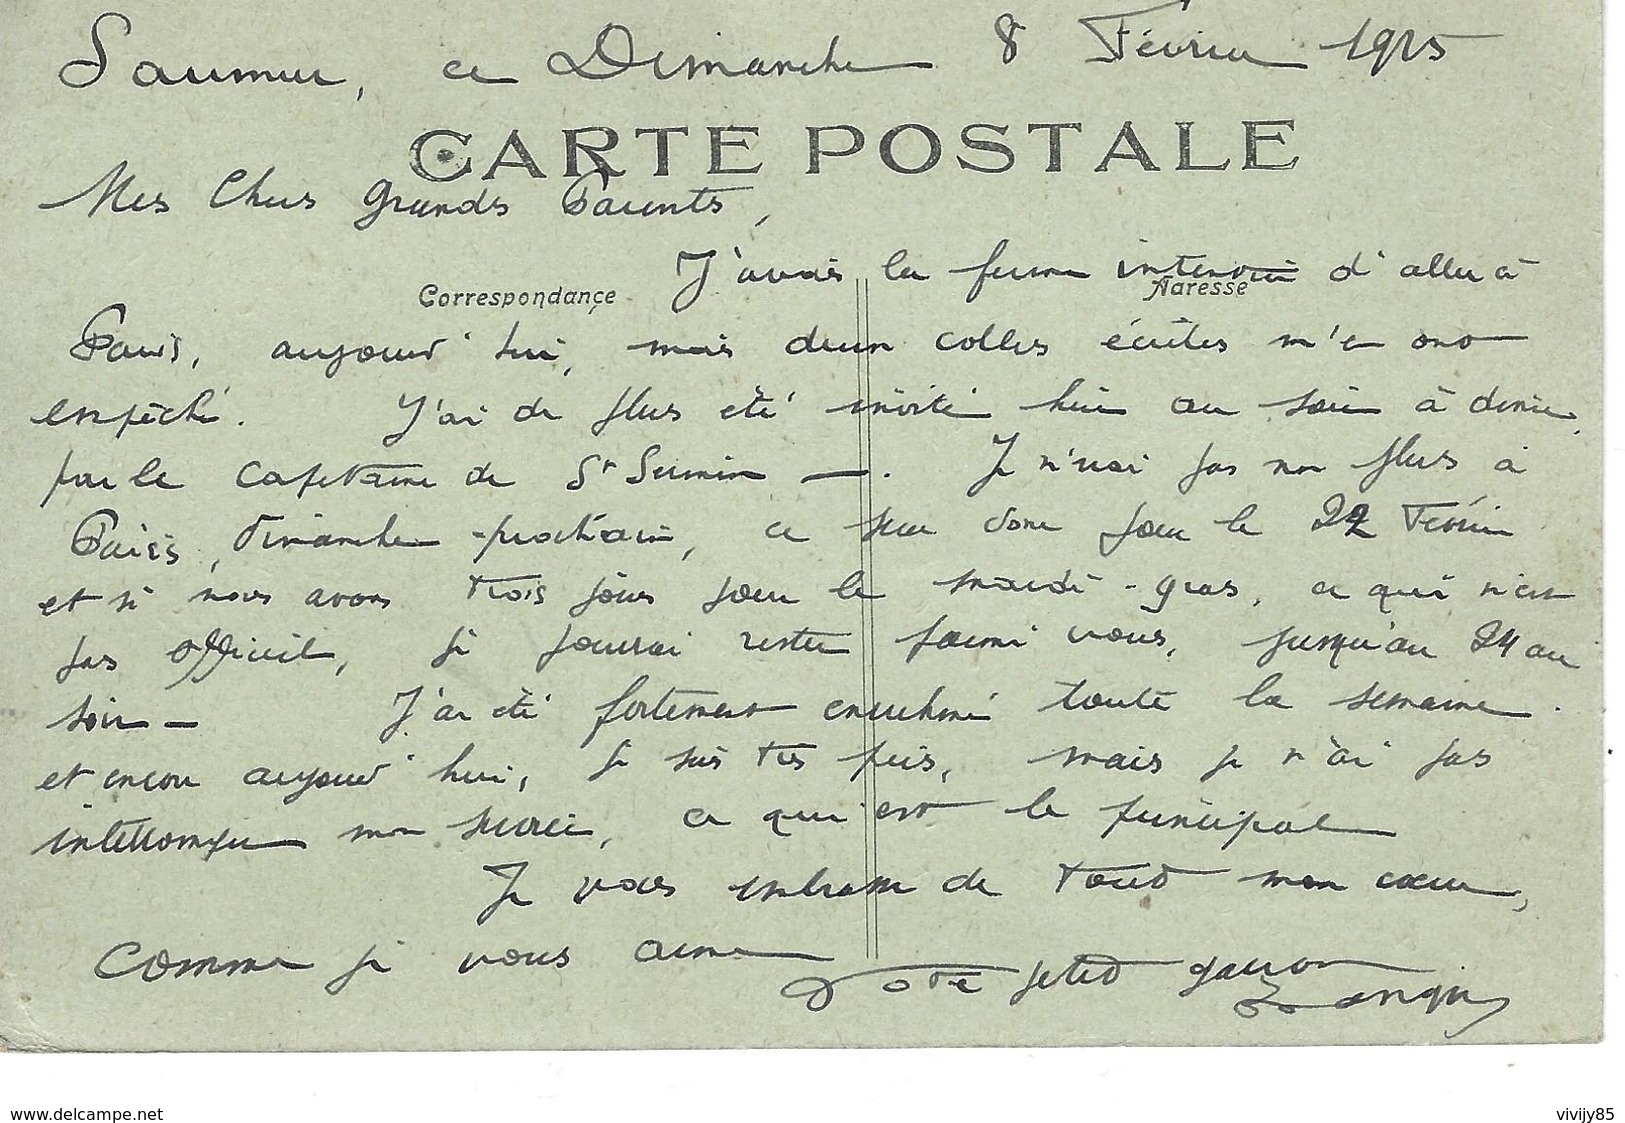 Saumur, ce Dimanche 8 Février 1925
CARTE POSTALE
Mes Chers Grands Parents,
J'avais la ferme intention d'aller à
Correspondance
Adresse
Paris, aujourd'hui, mais deux colles écrites m'en ont
empêché. J'ai de plus été invité hier au soir à diner,
par le capitaine de St Sernin —. Je n'irai pas non plus à
Paris, Dimanche prochain, ce sera donc pour le 22 Février
et si nous avons trois jours pour le mardi-gras, ce qui n'est
pas officiel, je pourrai rester parmi vous, jusqu'au 24 au
soir — J'ai été fortement enrhumé toute la semaine.
et encore aujourd'hui, je suis très pris, mais je n'ai pas
interrompu mon service, ce qui est le principal
Je vous embrasse de tout mon cœur,
comme je vous aime
Votre petit garçon
www.delcampe.net
vivijy85